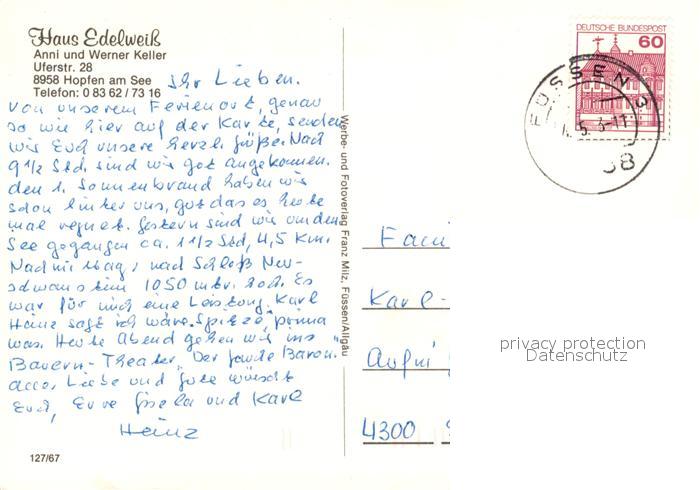 Haus Edelweiß
Anni und Werner Keller
Uferstr. 28
8958 Hopfen am See
Telefon: 0 83 62 / 73 16
Ihr Lieben.
von unserem Ferienort, genau
so wie hier auf der Karte, senden
wir Euch unsere herzl. Grüße. Nach
9 1/2 Std. sind wir gut angekommen.
den 1. Sonnenbrand haben wir
schon hinter uns, gut das es heute
mal regnet. gestern sind wir um den
See gegangen ca. 1 1/2 Std, 4,5 Km.
Nachmittag, nach Schloß Neu-
schwanstein 1050 mtr. hoch. Es
war für mich eine Leistung. Karl
Heinz sagt ich wäre Spitze, prima
was. Heute Abend gehen wir ins
Bauern-Theater, "Der Baron."
alles Liebe und Gute wünscht
Euch, Eure Gisela und Karl
Heinz
127/67
Werbe- und Fotoverlag Franz Milz, Füssen/Allgäu
DEUTSCHE BUNDESPOST
60
FÜSSEN 3
Fami
Karl-
4300
privacy protection
Datenschutz